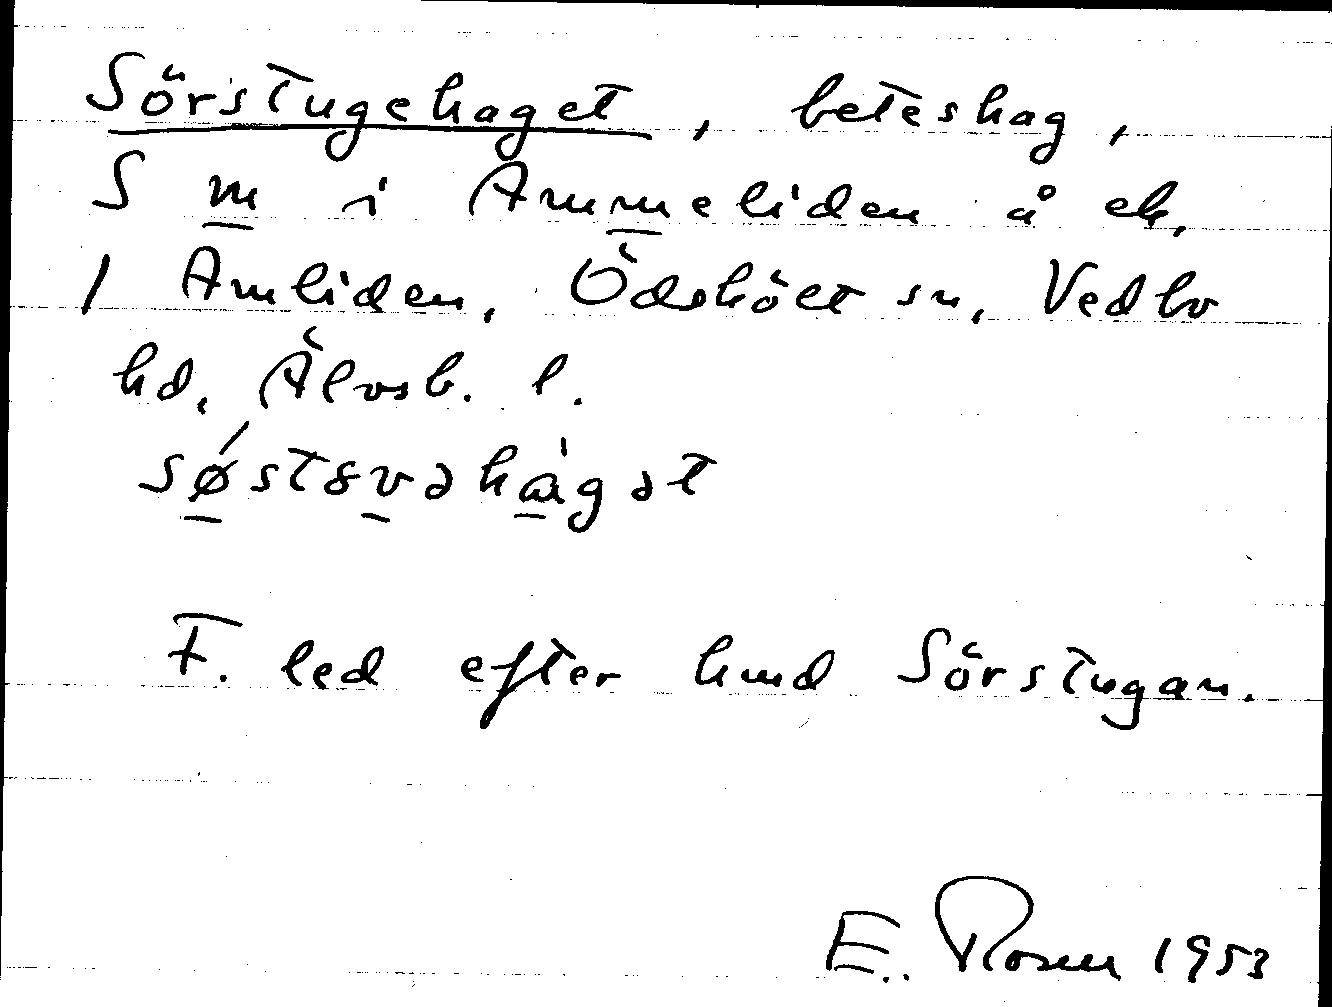 Sörstugehaget, beteshag,
S m i Ammeliden å ek,
1 Amliden, Ödskölt sn, Vedbo
hd, Älvsb. l.
F. led efter hmd Sörstugan.
E. Rosen 1953